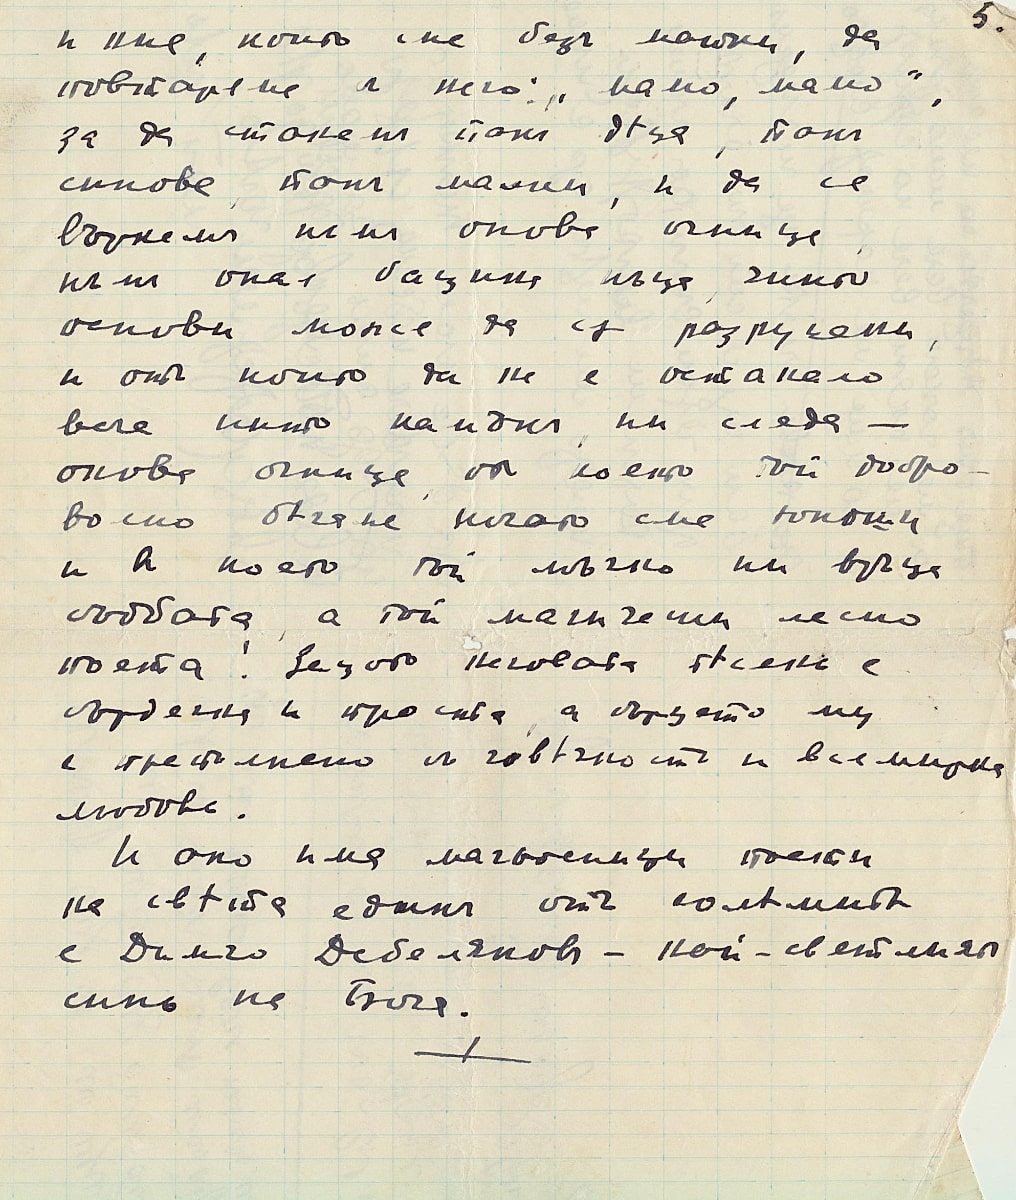 5.
и ние, които сме безъ майки, да
повтаряме съ него: „мамо, мамо“,
за да станемъ пакъ дѣца, пакъ
синове, пакъ малки, и да се
върнемъ къмъ онова огнище,
къмъ оная бащина къща, чиито
основи може да сѫ разрушени,
и отъ която да не е останало
вече нито камъкъ, ни следа —
онова огнище, отъ което той добро-
волно бѣгаше когато сме юноши
и въ което той мъчно ни връща
съдбата, а той магически лесно
поета! Защото неговата пѣсень е
сърдечна и проста, а сърцето му
е препълнено съ човѣчность и всемирна
любовь.
И ако има магьосници поети
на свѣта единъ отъ голѣмитѣ
е Димчо Дебеляновъ – най-светлиятъ
синъ на Бога.